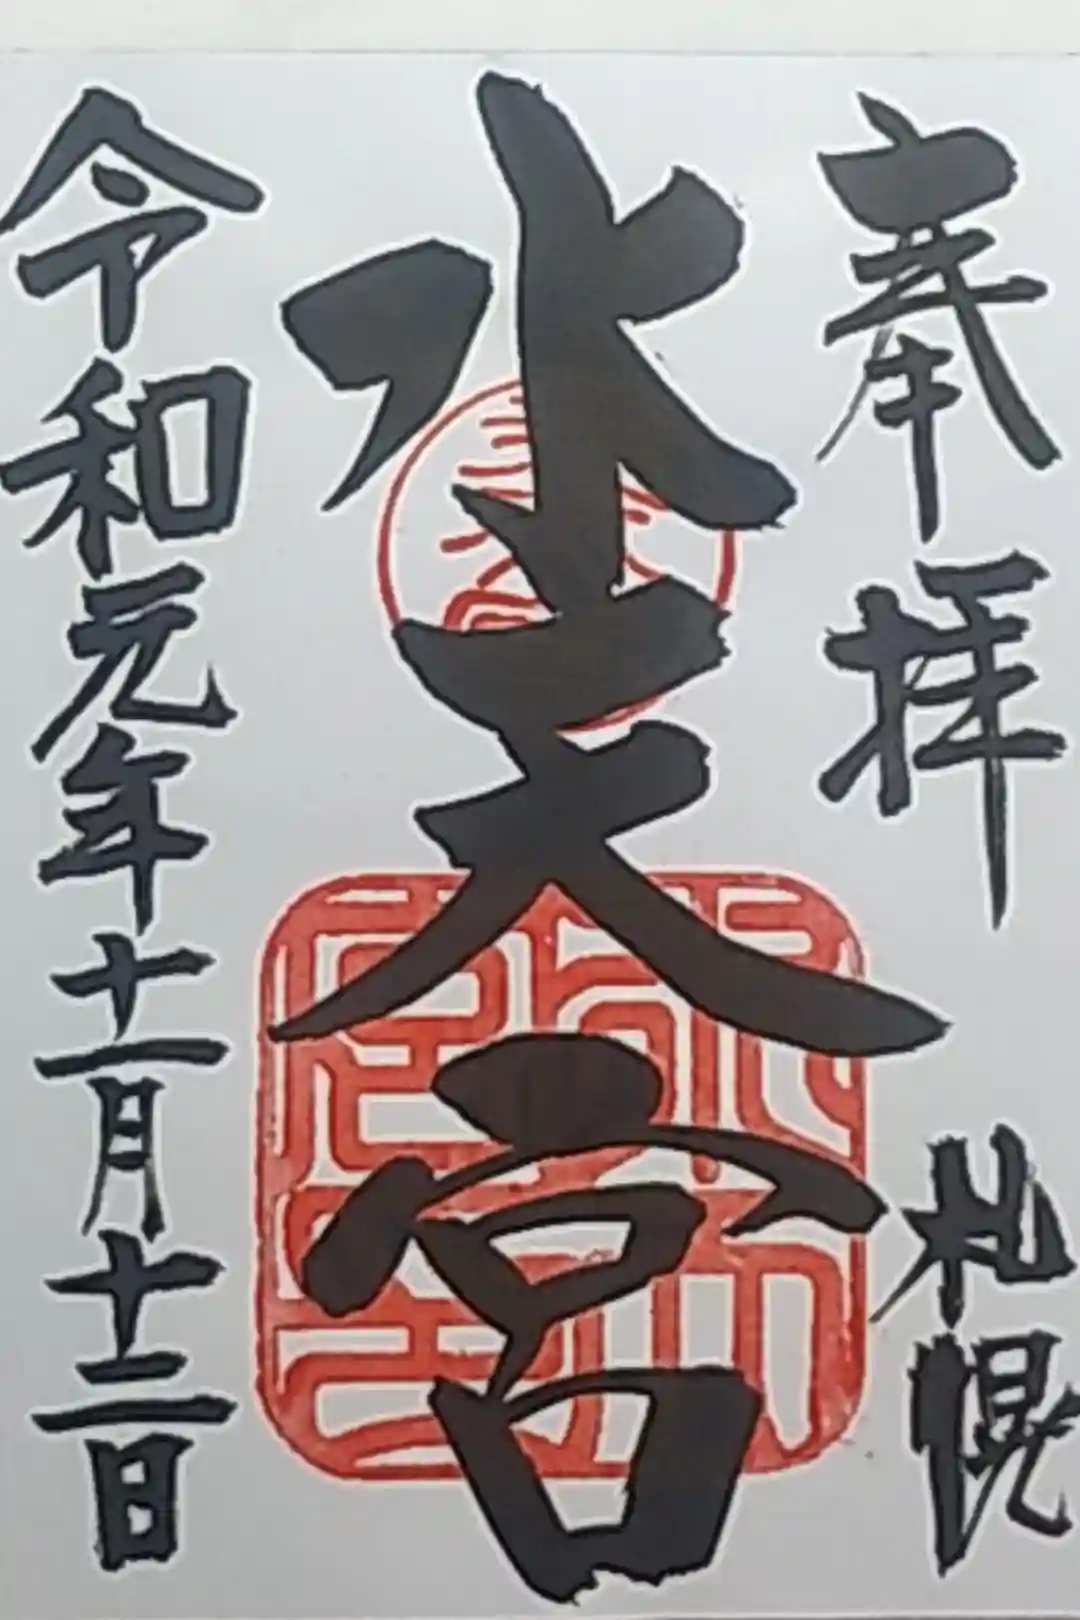 奉拝 札幌
水天宮
令和元年十一月十二日